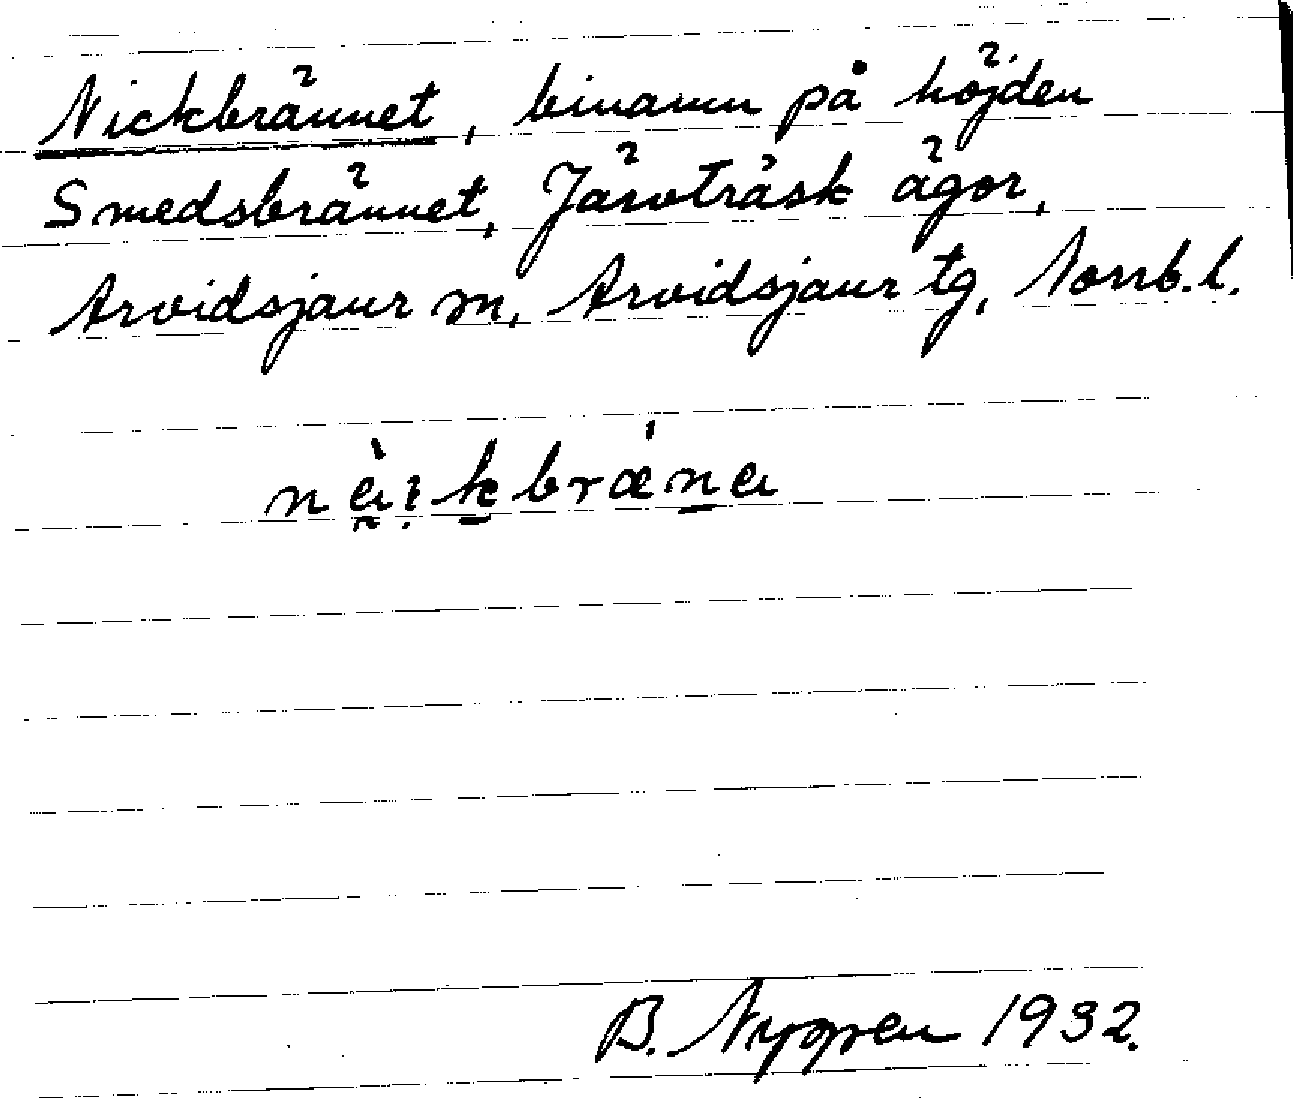 Nickbrännet, binamn på höjden
Smedsbrännet, Järvträsk ägor,
Arvidsjaur sn, Arvidsjaur tg, Norrb.l.
B. Nygren 1932.